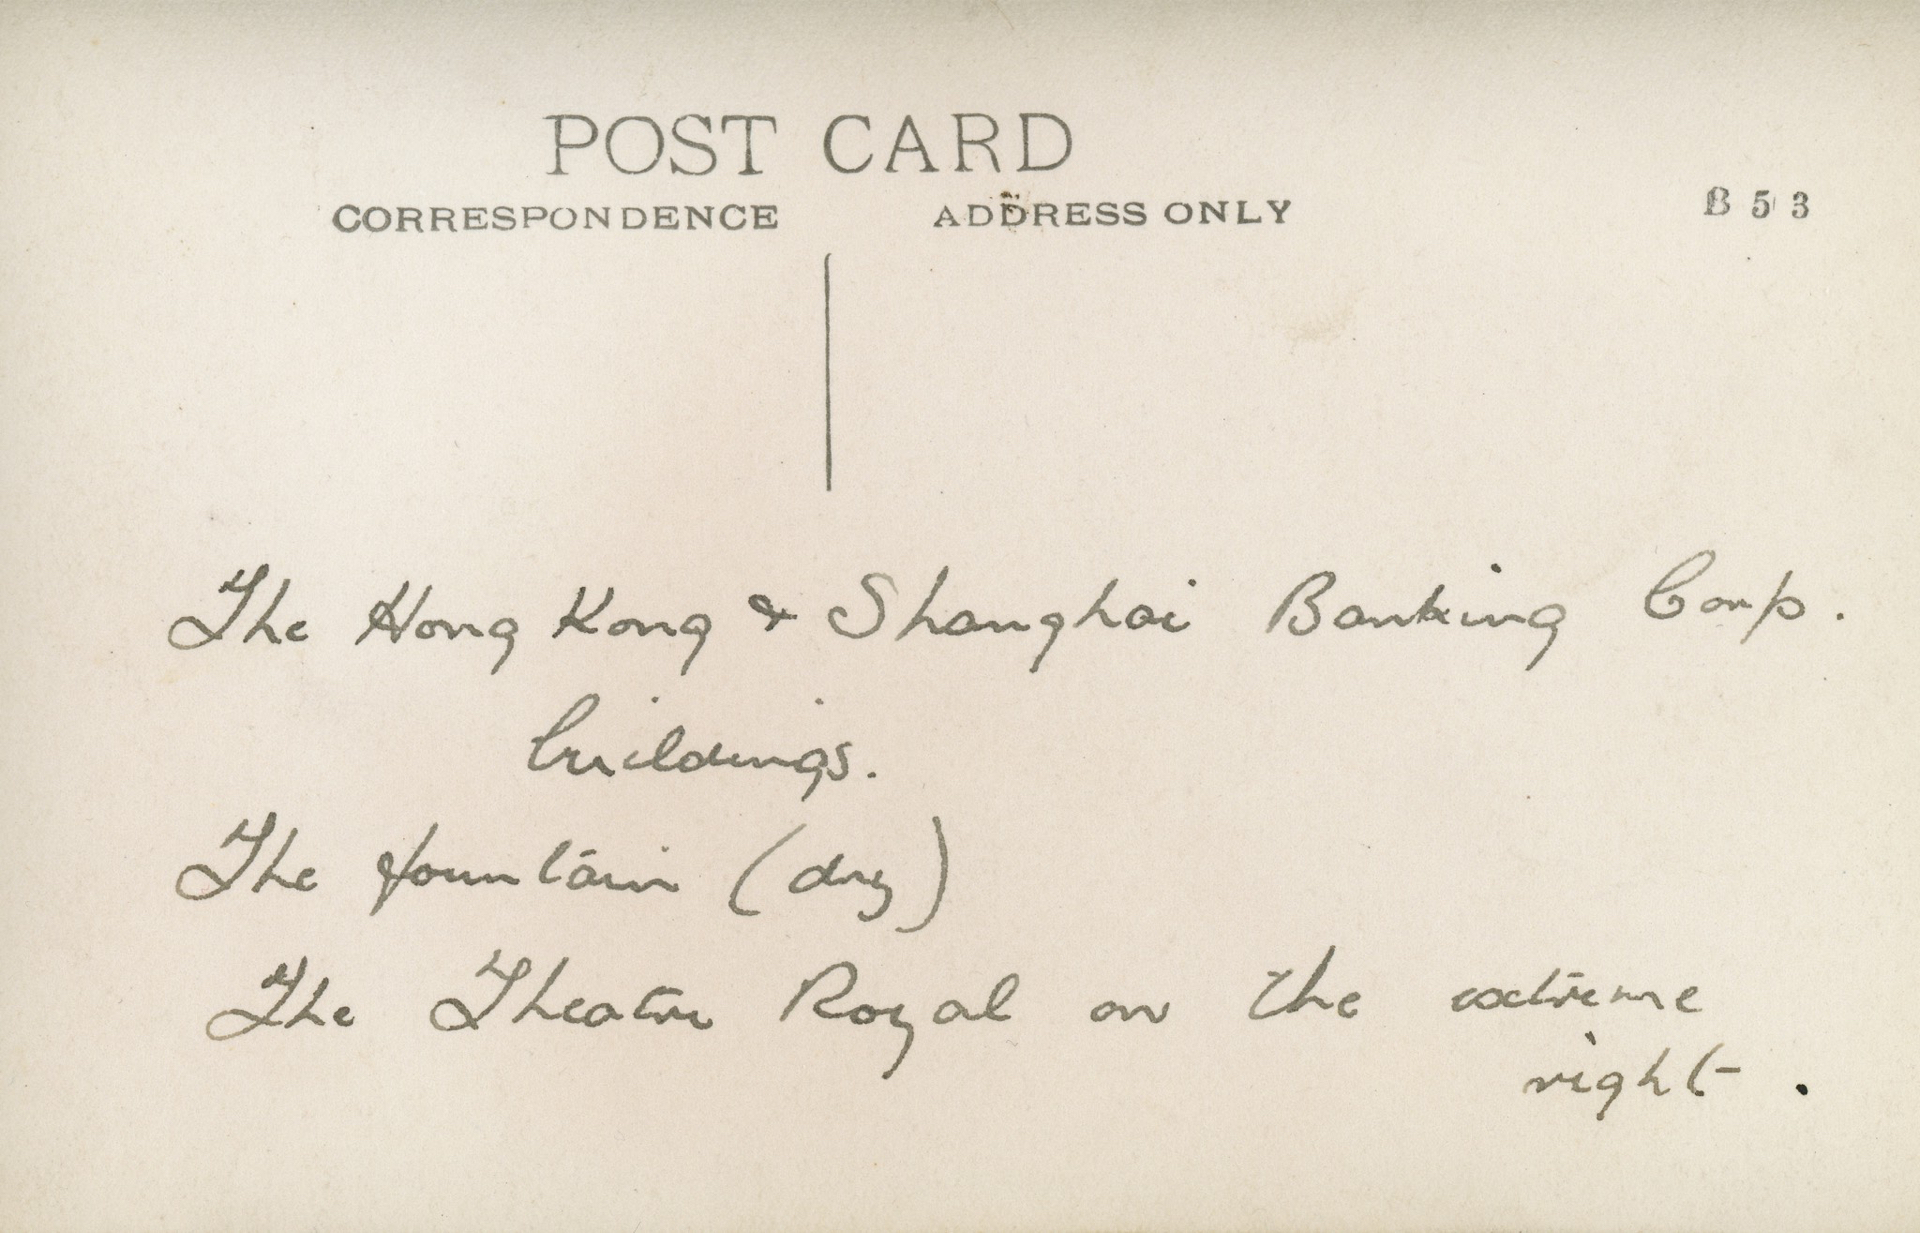 POST CARD
CORRESPONDENCE ADDRESS ONLY
B 53
The Hong Kong & Shanghai Banking Corp.
buildings.
The fountain (dry)
The Theatre Royal on the extreme
right.